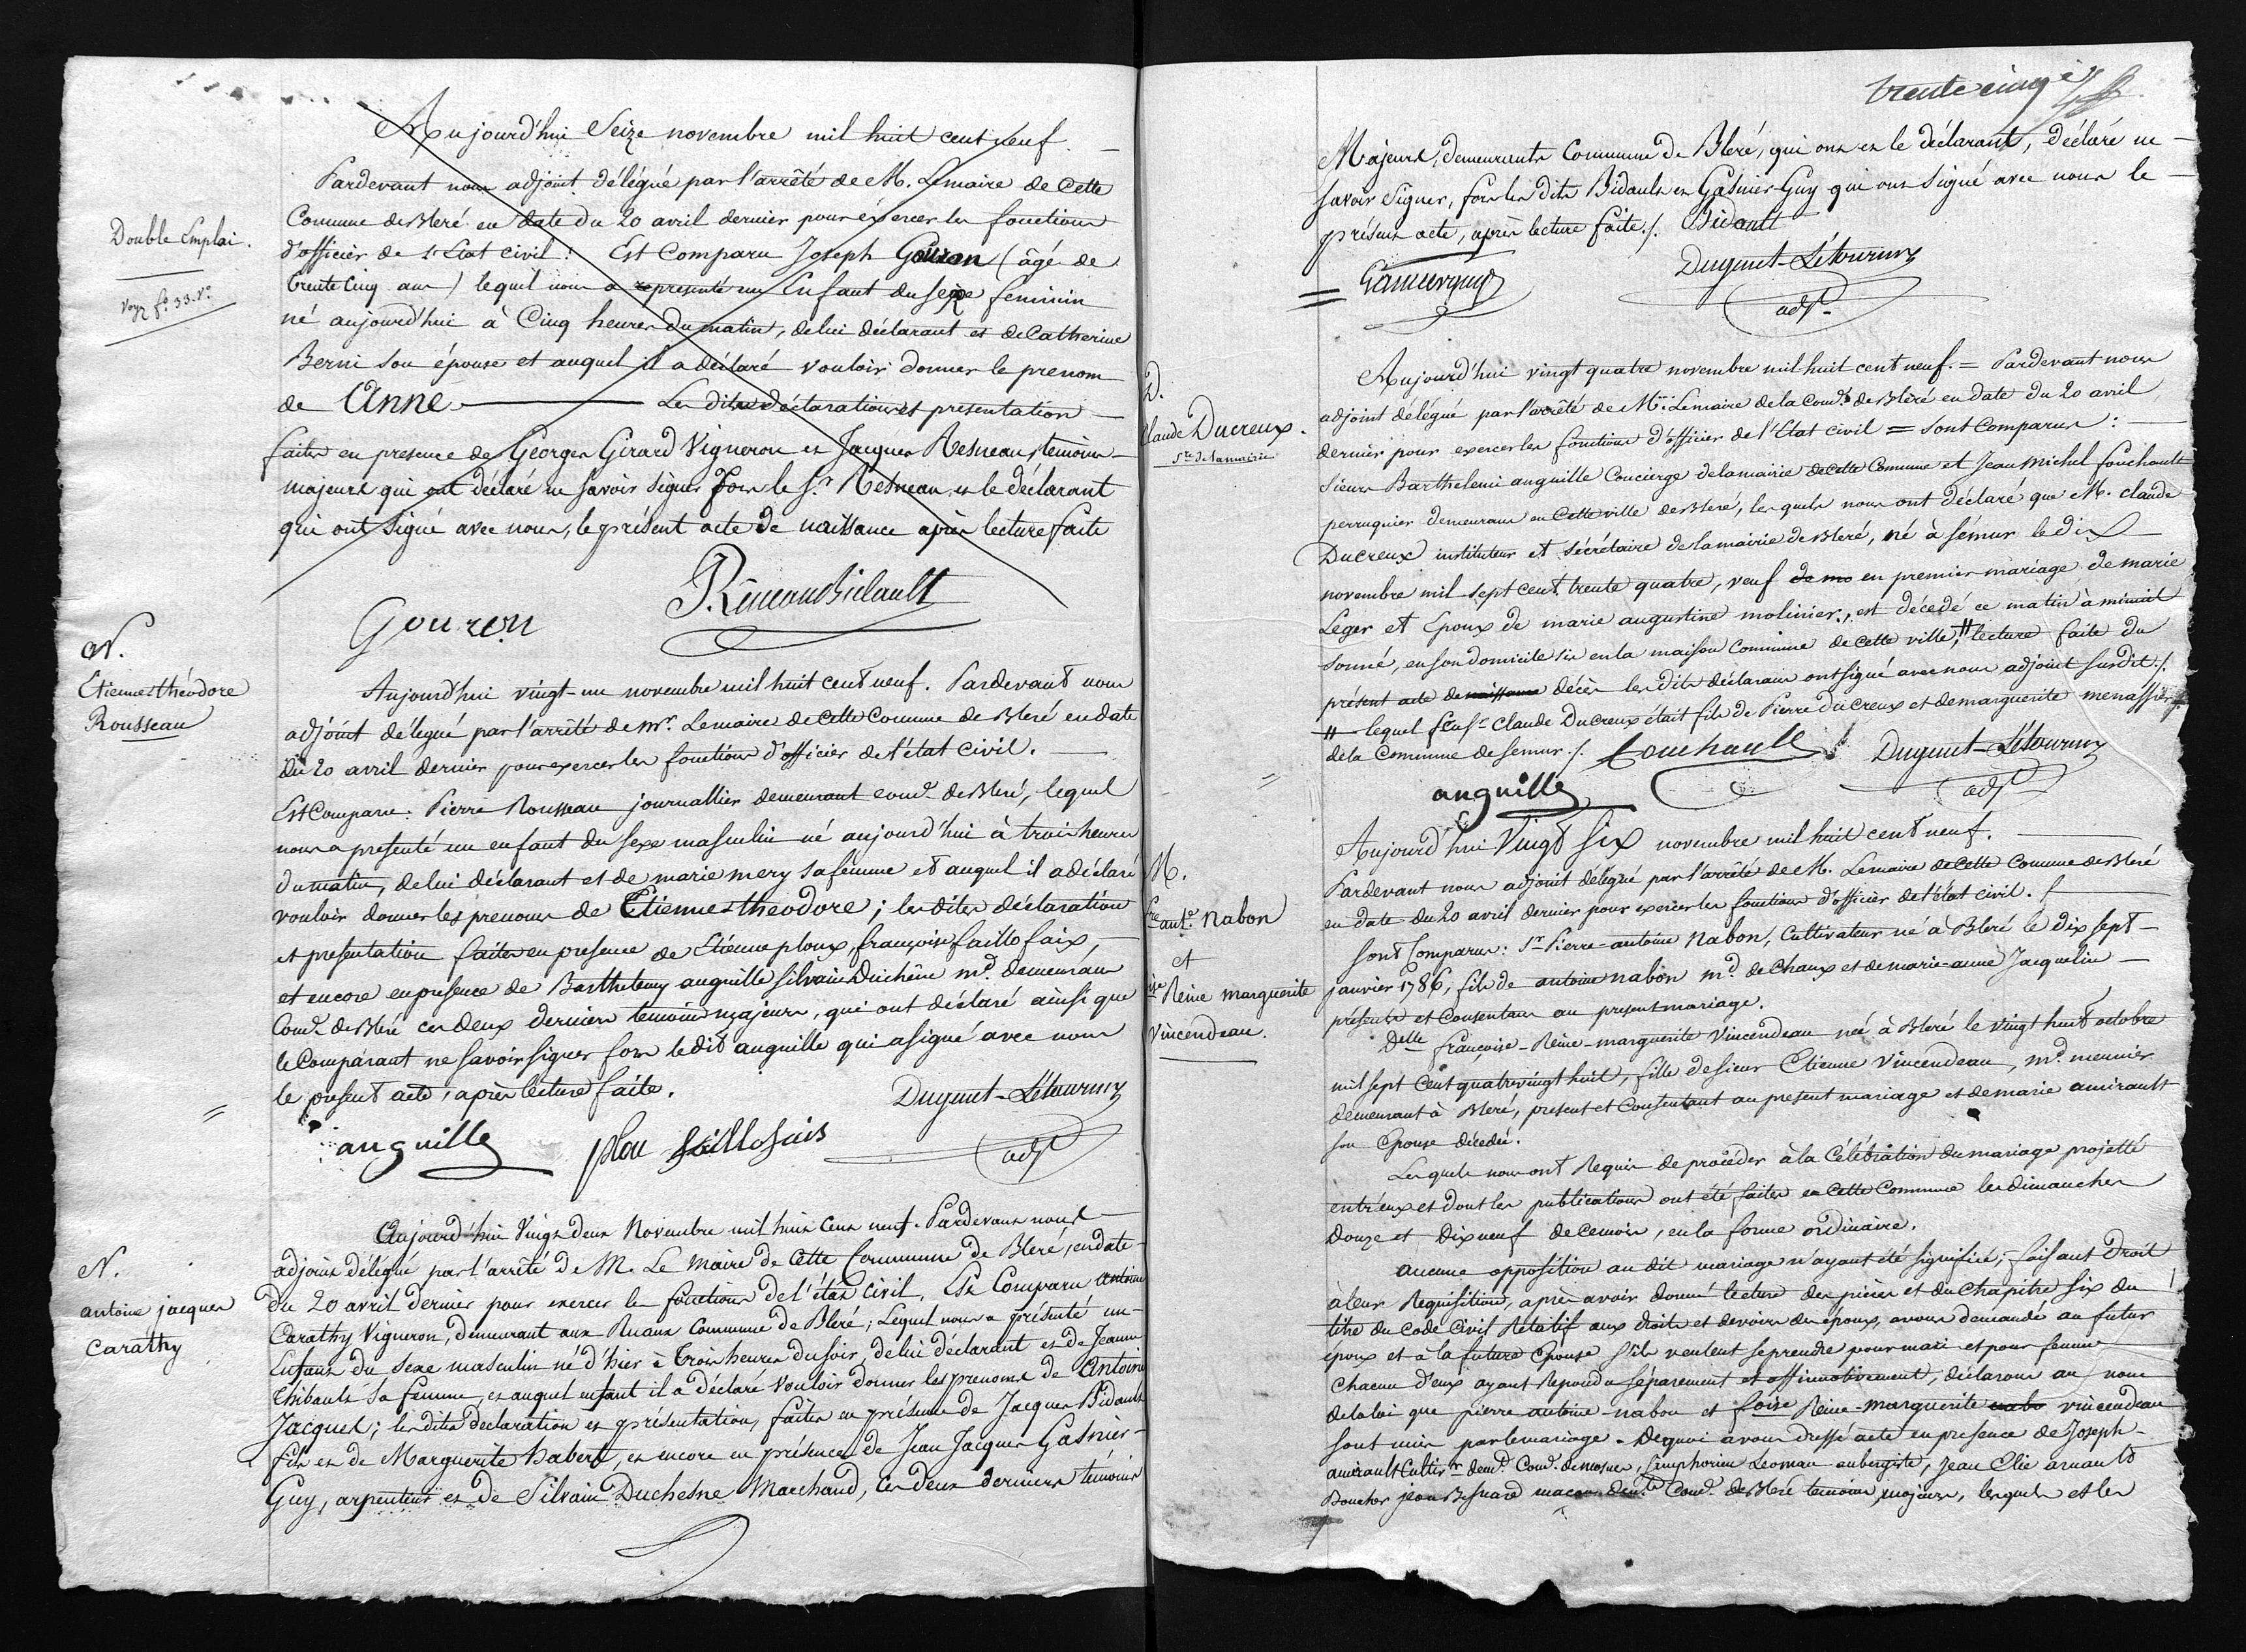 Aujourd'hui Seize novembre mil huit cent neuf.
Pardevant nous adjoint délégué par l'arrêté de M. Lemaire de cette
Double Emploi.
Commune de Bleré en date du 20 avril dernier pour exercer les fonctions
d'officier de l'Etat civil : Est Comparu Joseph Gouron (âgé de
Voyz fo. 33. Vo.
trente cinq ans) lequel nous a representé un Enfant du sexe feminin
né aujourd'hui à Cinq heures du matin, de lui déclarant et de Catherine
Berni son épouse et auquel il a déclaré vouloir donner le prenom
de Anne Les dites déclaration et presentation
faites en presence de Georges Girard Vigneron et Jacques Resneau, temoins
majeurs qui ont déclaré ne savoir signer fors le Sr. Resneau et le déclarant
qui ont signé avec nous, le présent acte de naissance après lecture faite
Gouron
N.
Etienne théodore
Rousseau
Aujourd'hui vingt-un novembre mil huit cent neuf. Pardevant nous
adjoint délégué par l'arrêté de mr. Lemaire de cette Commune de Bleré en date
du 20 avril dernier pour exercer les fonctions d'officier de l'état civil.
Est Comparu : Pierre Rousseau journallier demeurant come de Bleré, lequel
nous a presenté un enfant du sexe masculin né aujourd'hui à trois heures
du matin, de lui déclarant et de marie mery sa femme et auquel il a déclaré
vouloir donner les prenoms de Etienne theodore ; les dites déclaration
et presentation faites en presence de Etienne ploux, françois faillo faix,
et encore en presence de Barthelemy anguille silvain Duchêne md. demeurans
Come de Bleré ces deux derniers temoins majeurs, qui ont déclaré ainsi que
le Comparant ne savoir signer fors ledit anguille qui a signé avec nous
le present acte, après lecture faite.
Duguet-Létourmy
anguille plou
adjt
N.
antoine jacques
Carathy
Aujourd'hui Vingt deux Novembre mil huit cent neuf. Pardevant nous
adjoint délégué par l'arrêté de M. Le Maire de cette Commune de Bleré, en date
du 20 avril dernier pour exercer les fonctions de l'état civil, Est Comparu Antoine
Carathy Vigneron, demeurant aux Ruaux Commune de Bleré ; Lequel nous a présenté un
Enfant du sexe masculin né d'hier à trois heures du soir, de lui déclarant et de Jeanne
Thibault sa femme, et auquel enfant il a déclaré vouloir donner les prenoms de Antoine
Jacques ; les dites déclaration et présentation, faites en présence de Jacques Bidault
fils et de Marguerite habert, et encore en présence de Jean Jacques Gasnier-
Guy, arpenteur et de Silvain Duchesne Marchand, ces deux derniers témoins
trente cinq
Majeurs, demeurants Commune de Bleré, qui ont et le déclarant, déclaré ne
savoir signer, fors les dits Bidault et Gasnier-Guy qui ont signé avec nous le
présent acte, après lecture faite ./. Bidault
Duguet-Létourmy
adjt.
D.
Claude Ducreux.
Sre de la mairie
Aujourd'hui vingt quatre novembre mil huit cent neuf. = Pardevant nous
adjoint délégué par l'arrêté de Mr. Lemaire de la Come de Bleré en date du 20 avril
dernier pour exercer les fonctions d'officier de l'Etat civil = sont Comparus :
Sieurs Barthelemi anguille Concierge de la mairie de cette Commune et Jean Michel fouchault
perruquier demeurans en cette ville de Bleré, lesquels nous ont déclaré que M. claude
Ducreux instituteur et sécrétaire de la mairie de Bleré, né à sémur le dix
novembre mil sept cent trente quatre, veuf de mo en premier mariage de marie
Leger et Epoux de marie augustine molinier, est décédé ce matin à minuit
sonné, en son domicile sis en la maison Commune de cette ville, # lecture faite du
présent acte de naissance décès les dits déclarans ont signé avec nous adjoint susdit ./.
# lequel feu sr claude Ducreux était fils de Pierre ducreux et de marguerite menassier
de la Commune de semur ./. fouchault Duguet-Létourmy
anguille adjt
M.
Pre ant.e Nabon
et
Reine marguerite
Vincendeau.
Aujourd'hui Vingt six novembre mil huit cent neuf.
Pardevant nous adjoint délégué par l'arrêté de M. Lemaire de cette Commune de Bleré
en date du 20 avril dernier pour exercer les fonctions d'officier de l'état civil.
sont Comparus : Sr Pierre-antoine Nabon, Cultivateur né à Bleré le dix sept
janvier 1786, fils de antoine nabon md. de Chaux et de marie-anne Jacquelin
presens et consentans au present mariage.
Delle françoise-Reine-marguerite Vincendeau née à Bleré le vingt huit octobre
mil sept cent quatrevingt huit, fille de sieur Etienne Vincendeau, md. meunier
demeurant à Bleré, present et consentant au present mariage et de marie amirault
son Epouse décedée.
Lesquels nous ont Requis de procéder à la Célébration du mariage projetté
entr'eux et dont les publications ont été faites en cette Commune les dimanches
Douze et Dix neuf de ce mois, en la forme ordinaire.
aucune opposition au dit mariage n'ayant été signifiée, faisant droit
à leur Requisition, après avoir donné lecture des pièces et du chapitre six du
titre du Code Civil Relatif aux droits et devoirs des époux, avons demandé au futur
époux et à la future Epouse s'ils veulent se prendre pour mari et pour femme
chacun d'eux ayant Repondu séparement et affirmativement, déclarons au nom
de la loi que pierre antoine nabon et foise Reine-marguerite nabo vincendeau
sont unis par le mariage. De quoi avons dressé acte en presence de Joseph
amirault Cultivr demt Come de mosnes, simphorien Leomau aubergiste, Jean Elie arnault
Boucher jean Besnard maçon demts Come de Bleré temoins majeurs, lesquels et les